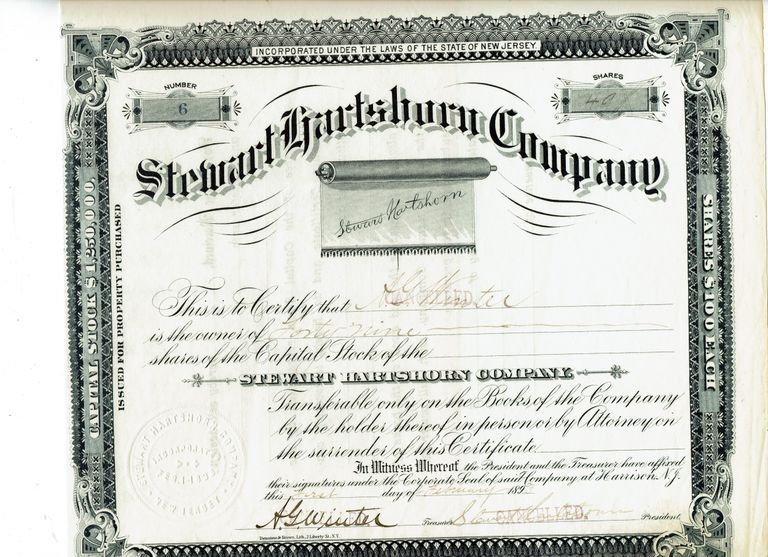 INCORPORATED UNDER THE LAWS OF THE STATE OF NEW JERSEY.
NUMBER
6
SHARES
49
Stewart Hartshorn Company
Stewart Hartshorn
CAPITAL STOCK $1,250,000.
ISSUED FOR PROPERTY PURCHASED
SHARES $100 EACH
This is to Certify that A G Winter
CANCELLED.
is the owner of Forty nine
shares of the Capital Stock of the
STEWART HARTSHORN COMPANY.
Transferable only on the Books of the Company
by the holder thereof in person or by Attorney on
the surrender of this Certificate.
In Witness Whereof the President and the Treasurer have affixed
their signatures under the Corporate Seal of said Company at Harrison, N.J.
this First day of February 189
A G Winter Treasurer Stewart Hartshorn President.
CANCELLED.
STEWART HARTSHORN COMPANY
NEW JERSEY